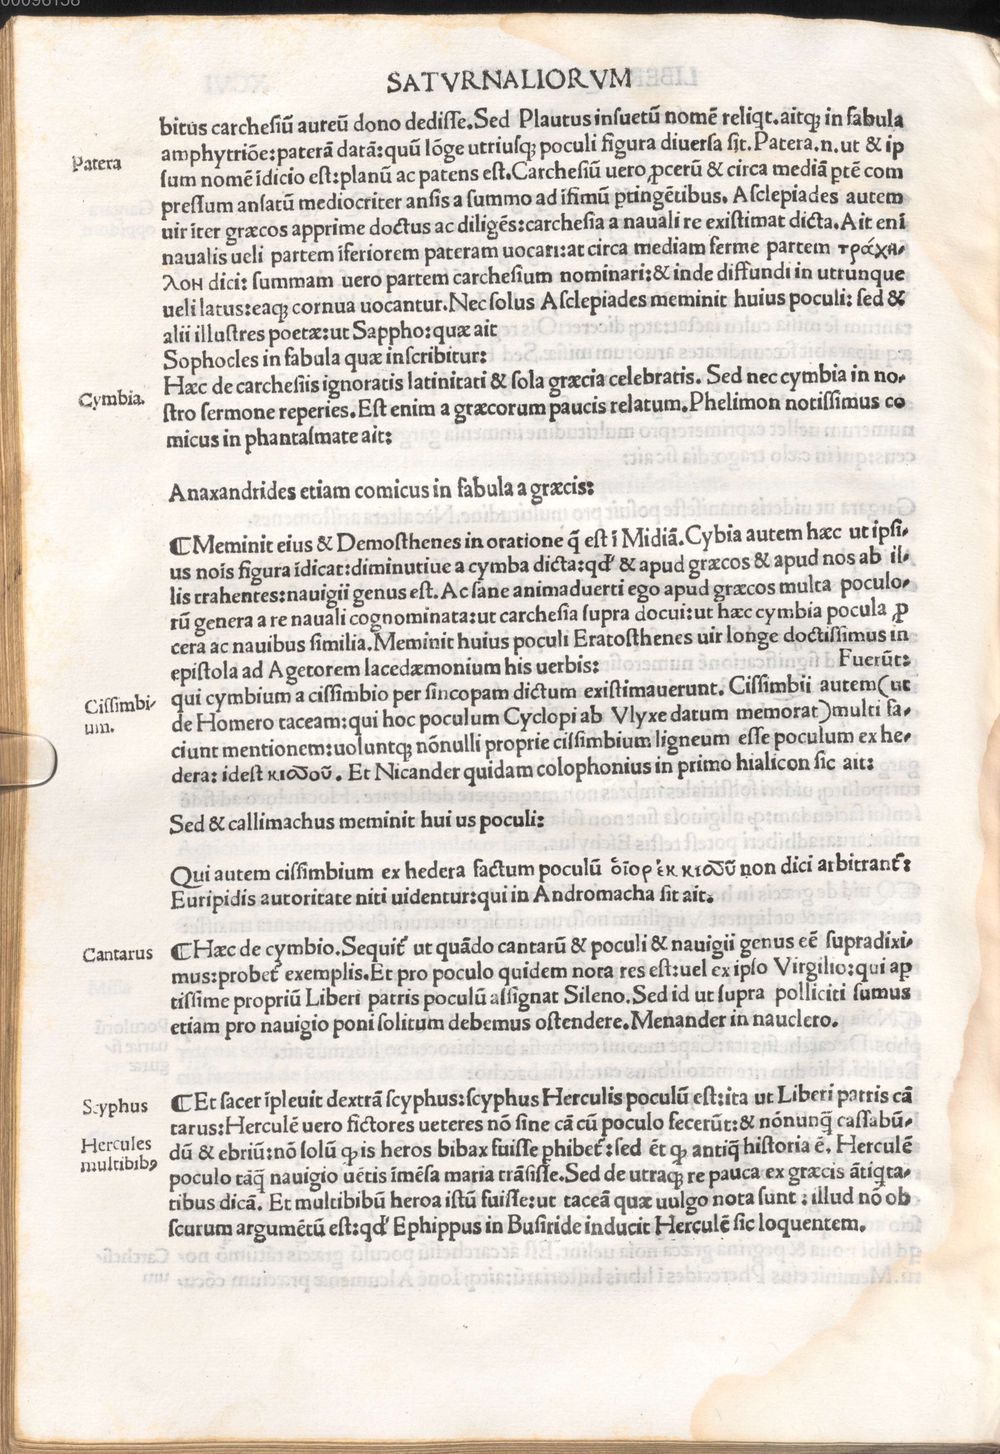 00096158
SATVRNALIORVM
bitus carchesiū aureū dono dedisse.Sed Plautus insuetū nomē reliqt.aitqꝫ in fabula
Patera
amphytriōe:paterā datā:quū lōge utriusqꝫ poculi figura diuersa sit.Patera.n.ut & ip
sum nomē īdicio est:planū ac patens est.Carchesiū uero ꝓcerū & circa mediā ptē com
pressum ansatū mediocriter ansis a summo ad īfimū ptingētibus. Asclepiades autem
uir īter græcos apprime doctus ac diligēs:carchesia a nauali re existimat dicta.Ait enī
naualis ueli partem īferiorem pateram uocari:at circa mediam ferme partem τράχη⸗
λοη dici: summam uero partem carchesium nominari:& inde diffundi in utrunque
ueli latus:eaqꝫ cornua uocantur.Nec solus Asclepiades meminit huius poculi: sed &
alii illustres poetæ:ut Sappho:quæ ait
Sophocles in fabula quæ inscribitur:
Hæc de carchesiis ignoratis latinitati & sola græcia celebratis. Sed nec cymbia in no⸗
Cymbia.
stro sermone reperies.Est enim a græcorum paucis relatum.Phelimon notissimus co
micus in phantasmate ait:
Anaxandrides etiam comicus in fabula a græcis:
⁋Meminit eius & Demosthenes in oratione q̄ est ī Midiā.Cybia autem hæc ut ipsi⸗
us nois figura īdicat:diminutiue a cymba dicta:qd' & apud græcos & apud nos ab il⸗
lis trahentes:nauigii genus est. Ac sane animaduerti ego apud græcos multa poculo⸗
rū genera a re nauali cognominata:ut carchesia supra docui:ut hæc cymbia pocula ꝓ
cera ac nauibus similia.Meminit huius poculi Eratosthenes uir longe doctissimus in
epistola ad Agetorem lacedæmonium his uerbis: Fuerūt:
Cissimbi⸗
um.
qui cymbium a cissimbio per sincopam dictum existimauerunt. Cissimbii autem(ut
de Homero taceam:qui hoc poculum Cyclopi ab Vlyxe datum memorat)multi fa⸗
ciunt mentionem:uoluntqꝫ nōnulli proprie cissimbium ligneum esse poculum ex he⸗
dera: idest κισσοῦ. Et Nicander quidam colophonius in primo hialicon sic ait:
Sed & callimachus meminit hui us poculi:
Qui autem cissimbium ex hedera factum poculū οἷορ ἐκ κισσῦ non dici arbitrant᷑:
Euripidis autoritate niti uidentur:qui in Andromacha sit ait.
Cantarus
⁋Hæc de cymbio.Sequit᷑ ut quādo cantarū & poculi & nauigii genus eē supradixi⸗
mus:probet᷑ exemplis.Et pro poculo quidem nota res est:uel ex ipso Virgilio:qui ap
tissime propriū Liberi patris poculū assignat Sileno.Sed id ut supra polliciti sumus
etiam pro nauigio poni solitum debemus ostendere.Menander in nauclero.
Scyphus
⁋Et sacer īpleuit dextrā scyphus:scyphus Herculis poculū est:ita ut Liberi patris cā
tarus:Herculē uero fictores ueteres nō sine cā cū poculo fecerūt:& nōnunq̄ cassabū⸗
Hercules
multibibꝰ
dū & ebriū:nō solū ꝙ is heros bibax fuisse phibet᷑:sed ēt ꝙ antiq̄ historia ē. Herculē
poculo tāq̄ nauigio uētis īmēsa maria trāsisse.Sed de utraqꝫ re pauca ex græcis ātiqta⸗
tibus dicā. Et multibibū heroa istū fuisse:ut taceā quæ uulgo nota sunt : illud nō ob
scurum argumētū est:qd' Ephippus in Busiride inducit Herculē sic loquentem.